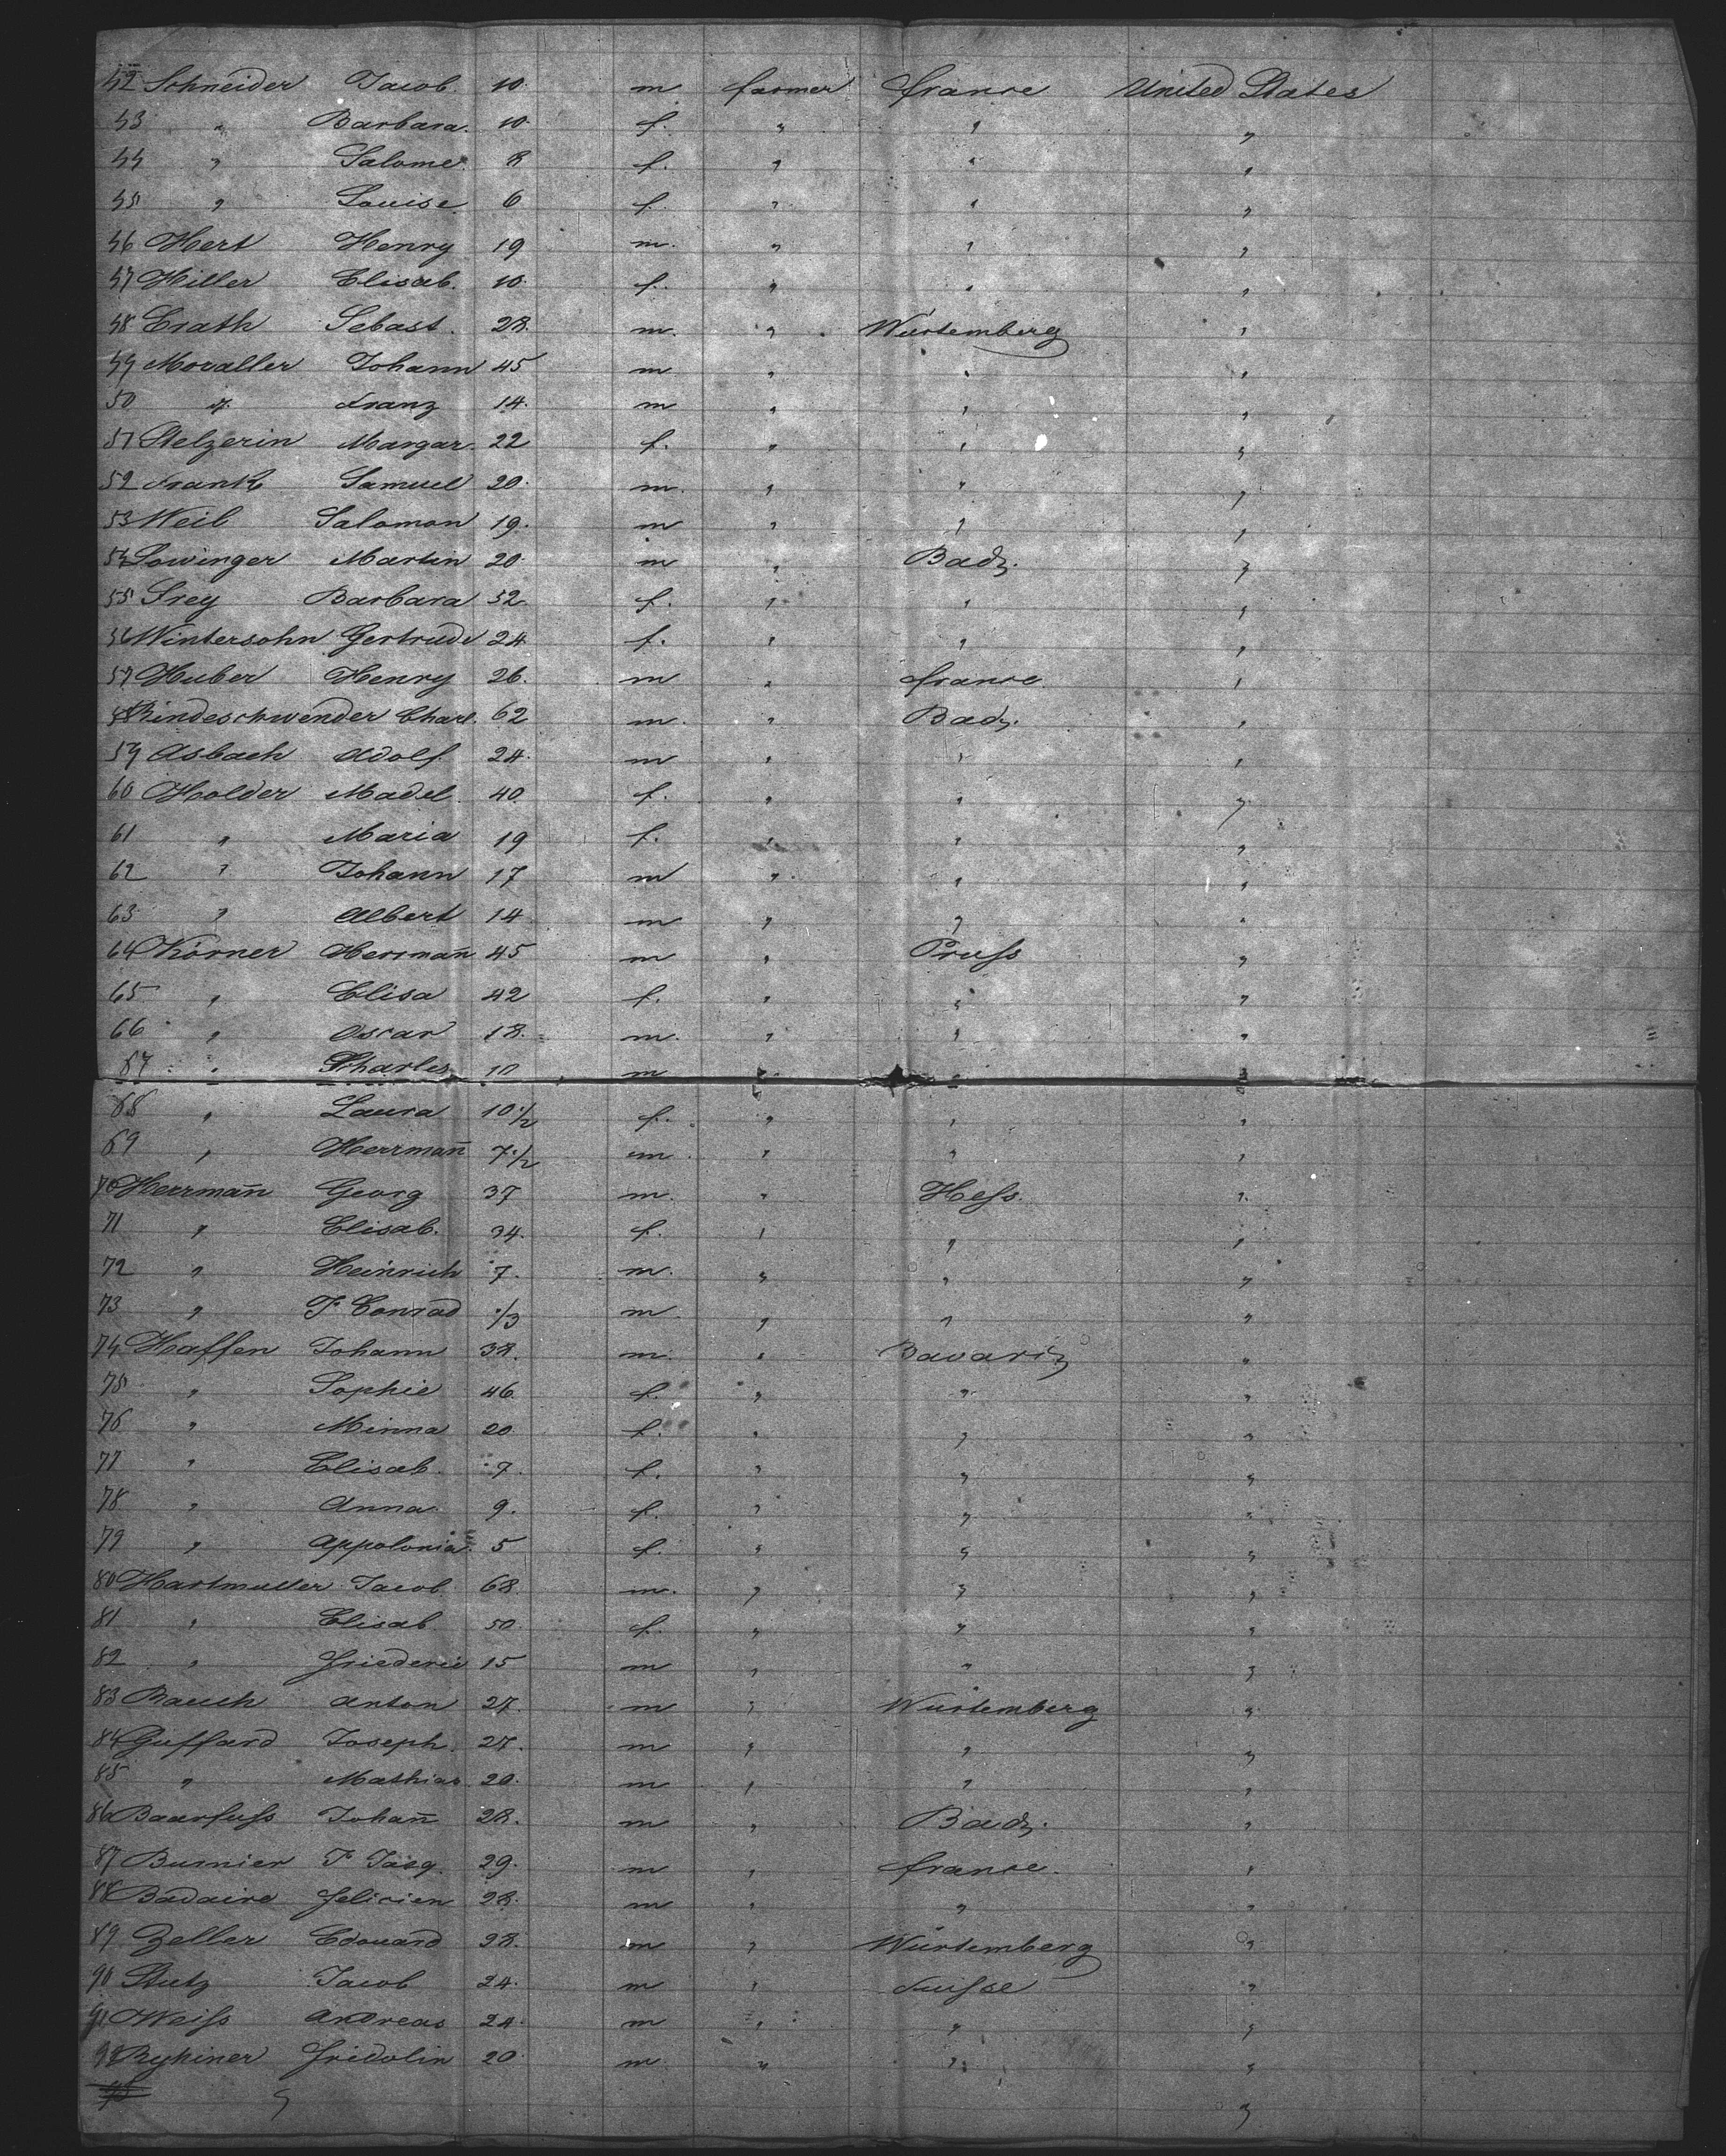 42 Schneider Jacob. 10. m farmer france United States
43 " Barbara. 10 f. " " "
44 " Salome. 8 f. " " "
45 " Louise 6 f. " " "
46 Hert Henry 19 m. " " "
47 Hiller Elisab. 10. f. " " "
48 Erath Sebast. 28. m. " Würtemberg "
49 Moraller Johann 45 m " " "
50 " Franz 14. m " " "
51 Stelzerin Margar. 22 f. " " "
52 Frank Samuel 20. m. " " "
53 Weil Salomon 19. m " " "
54 Lowinger Martin 20. m " Bad. "
55 Frey Barbara 52 f. " " "
56 Wintersohn Gertrude 24 f. " " "
57 Huber Henry 26. m " france. "
58 Rindeschwender Charl. 62 m. " Bad. "
59 Asbach Adolf. 24. m " " "
60 Holder Madel. 40 f. " " "
61 " Maria 19 f. " " "
62 " Johann 17 m " " "
63 " Albert 14 m " " "
64 Körner Herrmañ 45 m " Pruſs "
65 " Elisa 42 f. " " "
66 " Oscar 18. m. " " "
67 " Charles 10 m " " "
68 " Laura 10 1/2 f. " " "
69 " Herrmañ 7 1/2 m " " "
70 Herrmañ Georg 37 m. " Heſs. "
71 " Elisab. 34. f. " " "
72 " Heinrich 7. m. " " "
73 " P Conrad 1/3 m " " "
74 Haffen Johann 38. m. " Bavaria "
75 " Sophie 46. f. " " "
76 " Minna 20 f. " " "
77 " Elisab. 7. f. " " "
78 " Anna 9. f. " " "
79 " Appolonia 5 f. " " "
80 Hartmuller Jacob 68. m. " " "
81 " Elisab. 50. f. " " "
82 " 15 m " " "
83 Bauch Anton 27. m " Wurtemberg "
84 Guffard Joseph. 27. m " " "
85 " Mathias. 20. m " " "
86 Baarfuſs Johañ 28. m " Bad. "
87 Burnier P Jacq. 29. m " france. "
88 Badaire Felicien 28. m " " "
89 Zeller Edouard 38. m " Würtemberg "
90 Stutz Jacob 24. m " Suiſse "
91 Weiſs Andreas 24. m " " "
92 Ryhiner Fridolin 20 m " " "
"